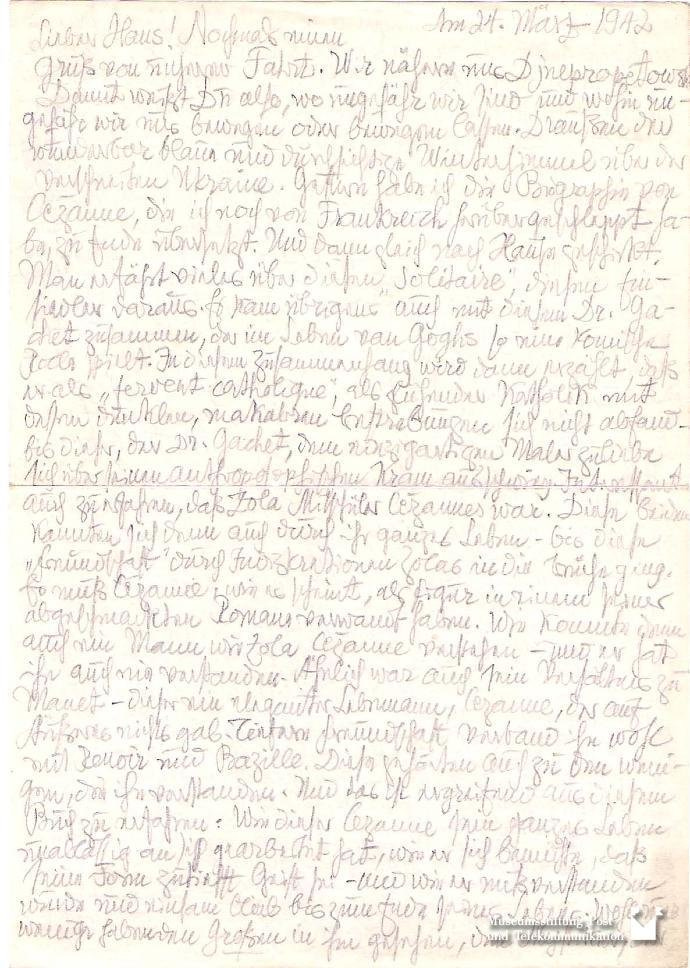 Am 24. März 1942
Lieber Hans! Nochmals einen
Gruß von unserer Fahrt. Wir nähern uns Djnepropetowsk
Damit weißt Du also, wo ungefähr wir sind und wohin un-
gefähr wir uns bewegen oder bewegen lassen. Draußen der
wunderbar blaue und durchsichtige Winterhimmel über der
verschneiten Ukraine. Gestern habe ich die Biographie von
Cézanne, die ich noch von Frankreich herübergeschleppt ha-
be, zu Ende übersetzt. Und dann gleich nach Hause geschickt.
Man erfährt vieles über diesen "Solitaire", diesen Ein-
siedler daraus. Er kam übrigens auch mit diesem Dr. Ga-
chet zusammen, der im Leben van Goghs so eine komische
Rolle spielt. In diesem Zusammenhang wird dann erzählt, daß
er als "fervent catholique", als glühender Katholik mit
dessen dunklen, makabren Bestrebungen sich nicht abfand -
bis dieser, der Dr. Gachet, dem einzigartigen Maler zuliebe
sich über seinen anthroposophischen Kram ausschwieg. Interessant
auch zu erfahren, daß Zola Mitschüler Cézannes war. Diese beiden
kannten sich denn auch durch ihr ganzes Leben - bis diese
"Freundschaft" durch Indiskretionen Zolas in die Brüche ging.
Er muß Cézanne, wie es scheint, als Figur in einem seiner
abgeschmackten Romane verwandt haben. Wie konnte denn
auch ein Mann wie Zola Cézanne verstehen - und er hat
ihn auch nie verstanden. Ähnlich war auch sein Verhältnis zu
Manet - dieser ein eleganter Lebemann, Cézanne, der auf
Äußeres nichts gab. Tiefere Freundschaft verband ihn wohl
mit Renoir und Bazille. Diese gehörten auch zu den weni-
gen, die ihn verstanden. Und das ist ergreifend aus diesem
Buch zu erfahren: Wie dieser Cézanne sein ganzes Leben
unablässig an sich gearbeitet hat, wie er sich bemühte, daß
seine Form zutiefst Geist sei - und wie er mißverstanden
wurde und einsam blieb bis zum Ende seines Lebens. Wohl nur
wenige haben den Großen in ihm gesehen,
Museumsstiftung Post
und Telekommunikation